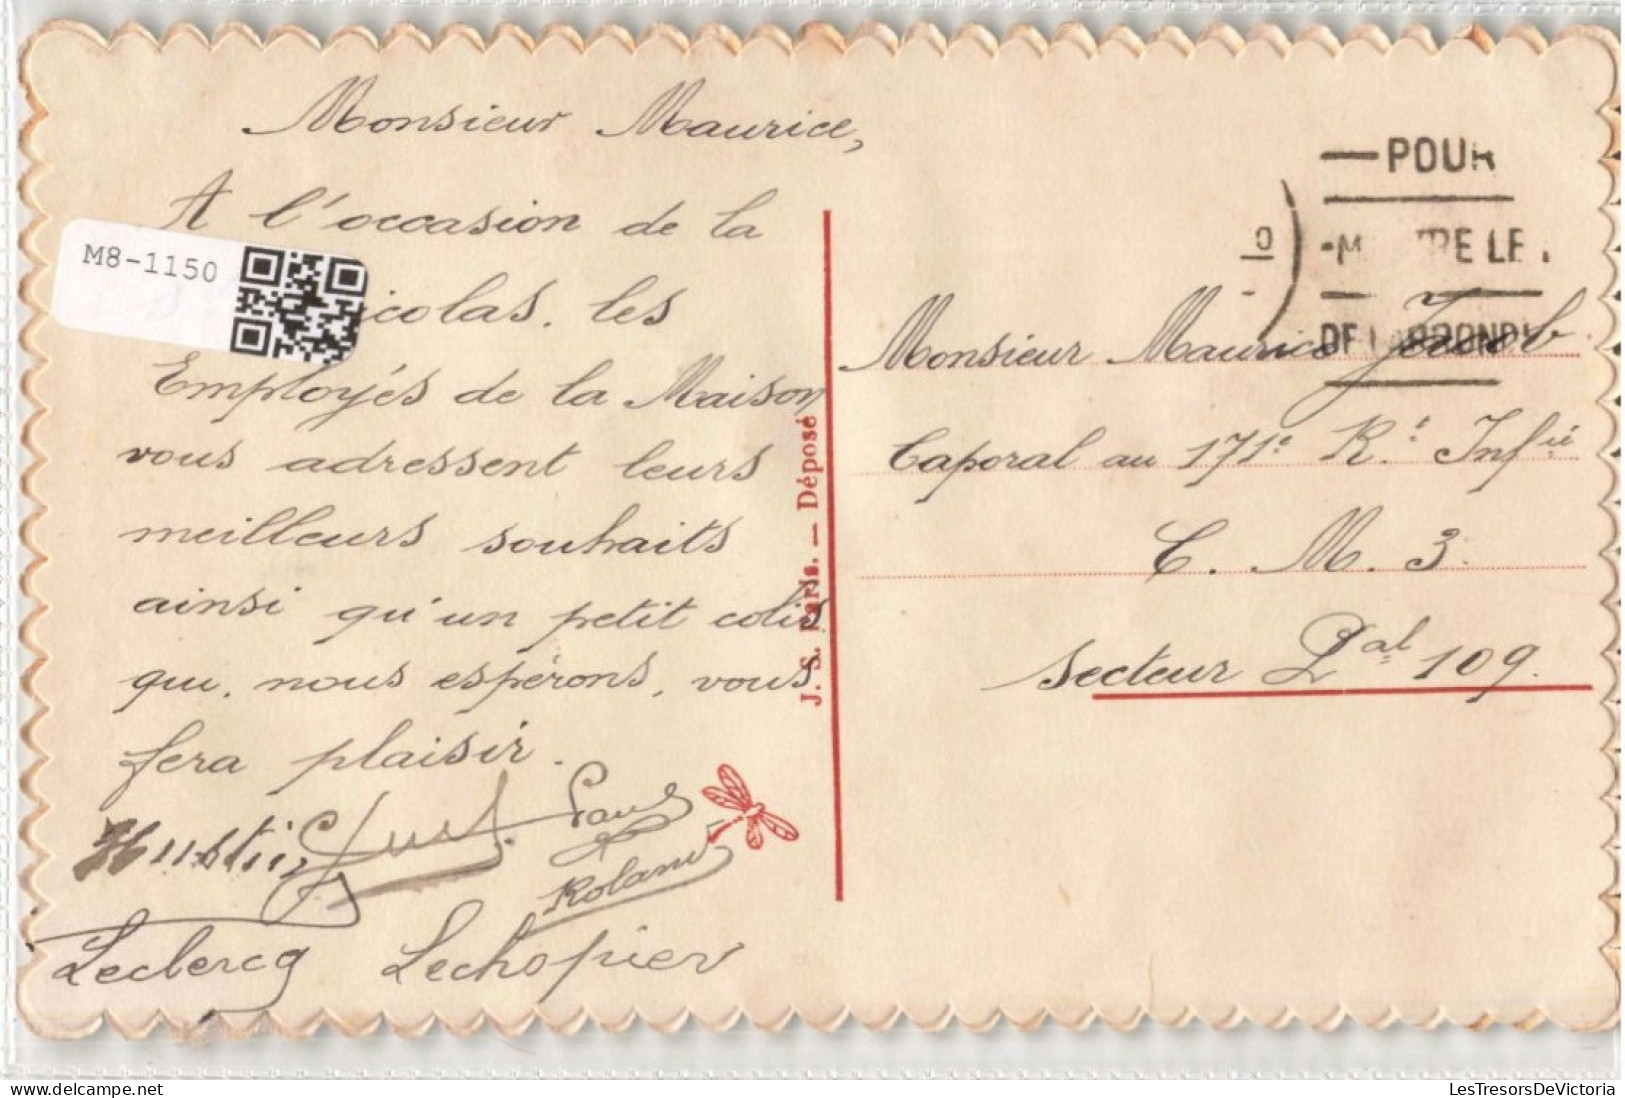 Monsieur Maurice,
A l'occasion de la
icolas, les
Employés de la Maison
vous adressent leurs
meilleurs souhaits
ainsi qu'un petit colis
qui, nous espérons, vous
fera plaisir.
Hustin
Paul
Roland
Leclercq Lechopier
M8-1150
J. S. Paris. — Déposé
POUR
LE
Monsieur Maurice
Caporal au 171e Rt Infie
C. M. 3.
secteur Pal 109.
delcampe.net
LesTresorsDeVictoria